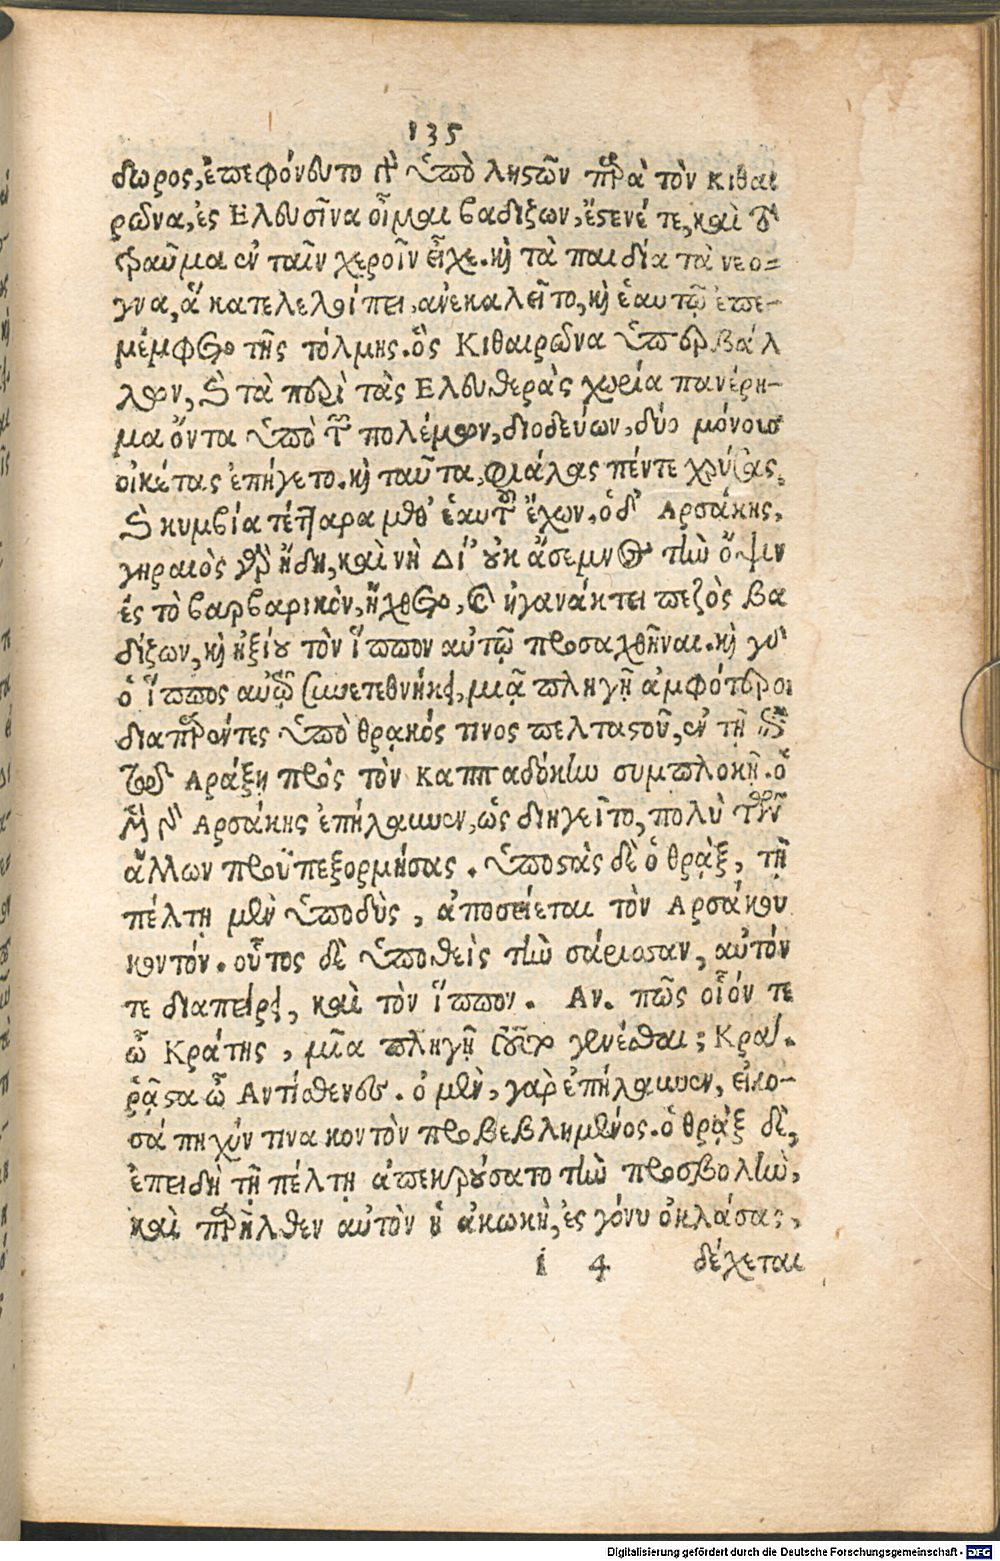 135
δωρος, ἐπεφόνευτο δὲ ὑπὸ λῃστῶν παρὰ τὸν κιθαι
ρῶνα, ἐς Ελευσῖνα οἶμαι βαδίζων, ἔστενέ τε, καὶ τὸ
τραῦμα ἐν ταῖν χεροῖν εἶχε. καὶ τὰ παιδία τὰ νεο-
γνα, ἃ κατελελοίπει, ἀνεκαλεῖτο, καὶ ἑαυτῷ ἐπε-
μέμφετο τῆς τόλμης. ὃς Κιθαιρῶνα ὑπερβάλ
λων, καὶ τὰ περὶ τὰς Ελευθερὰς χωρία πανέρη-
μα ὄντα ὑπὸ τῶν πολέμων, διοδεύων, δύο μόνους
οἰκέτας ἐπήγετο. καὶ ταῦτα, φιάλας πέντε χρυσᾶς,
καὶ κυμβία τέτταρα μεθ' ἑαυτοῦ ἔχων. ὁ δ' Αρσάκης,
γηραιὸς γὰρ ἤδη, καὶ νὴ Δί' οὐκ ἄσεμνος τὴν ὄψιν
ἐς τὸ βαρβαρικὸν, ἤχθετο, καὶ ἠγανάκτει πεζὸς βα
δίζων, καὶ ἠξίου τὸν ἵππον αὐτῷ προσαχθῆναι. καὶ γὰρ
ὁ ἵππος αὐτῷ συνετεθνήκει, μιᾷ πληγῇ ἀμφότεροι
διαπαρέντες ὑπὸ θρᾳκός τινος πελταστοῦ, ἐν τῇ ἐπὶ
τῷ Αράξῃ πρὸς τὸν Καππαδόκην συμπλοκῇ. ὁ
μὲν γὰρ Αρσάκης ἐπήλαυνεν, ὡς διηγεῖτο, πολὺ τῶν
ἄλλων προϋπεξορμήσας. ὑποστὰς δὲ ὁ θρᾲξ, τῇ
πέλτῃ μὲν ὑποδὺς, ἀποσείεται τὸν Αρσάκου
κοντόν. οὗτος δὲ ὑποθεὶς τὴν σάρισσαν, αὐτόν
τε διαπείρει, καὶ τὸν ἵππον. Αν. πῶς οἷόν τε
ὦ Κράτης, μίᾳ πληγῇ τοῦτο γενέσθαι; Κρα.
ῥᾷστα ὦ Αντίσθενες. ὁ μὲν, γαρ ἐπήλαυνεν, εἰκο-
σάπηχύν τινα κοντὸν προβεβλημένος. ὁ θρᾲξ δὲ,
ἐπειδὴ τῇ πέλτῃ ἀπεκρούσατο τὴν προσβολὴν,
καὶ παρῆλθεν αὐτὸν ἡ ἀκωκὴ, ἐς γόνυ ὀκλάσας,
i 4 δέχεται
Digitalisierung gefördert durch die Deutsche Forschungsgemeinschaft - DFG